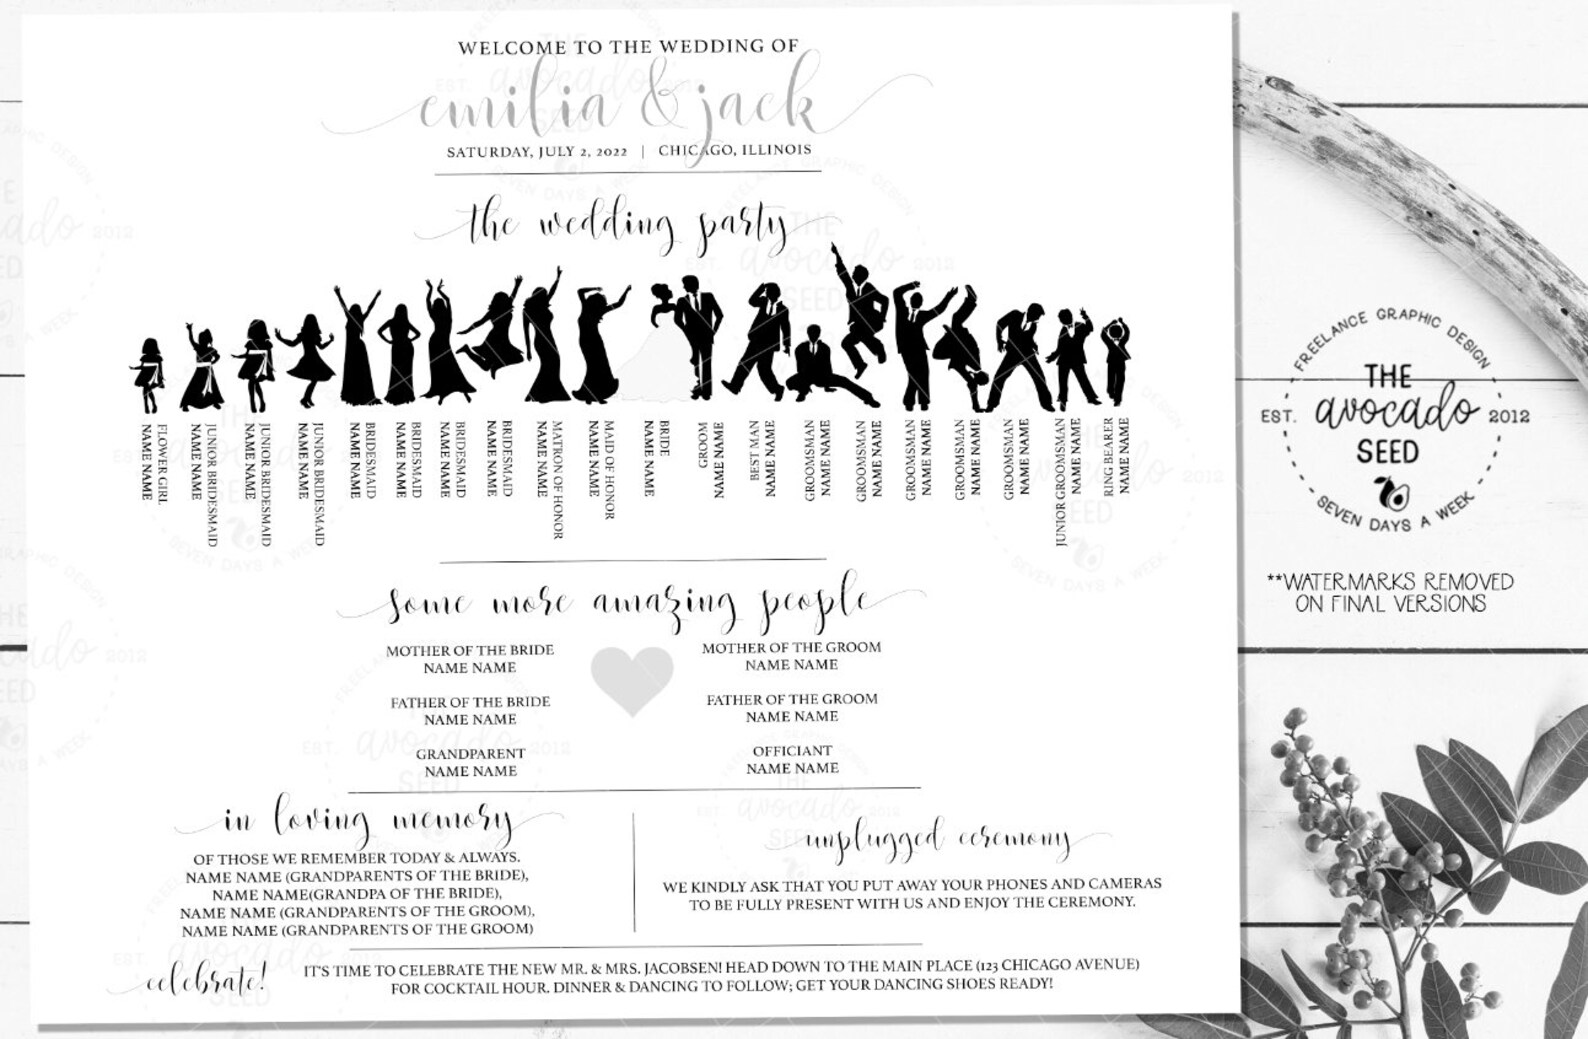 WELCOME TO THE WEDDING OF
emilia & jack
SATURDAY, JULY 2, 2022 | CHICAGO, ILLINOIS
the wedding party
FLOWER GIRL
NAME NAME
JUNIOR BRIDESMAID
NAME NAME
JUNIOR BRIDESMAID
NAME NAME
JUNIOR BRIDESMAID
NAME NAME
BRIDESMAID
NAME NAME
BRIDESMAID
NAME NAME
BRIDESMAID
NAME NAME
BRIDESMAID
NAME NAME
MATRON OF HONOR
NAME NAME
MAID OF HONOR
NAME NAME
BRIDE
NAME NAME
GROOM
NAME NAME
BEST MAN
NAME NAME
GROOMSMAN
NAME NAME
GROOMSMAN
NAME NAME
GROOMSMAN
NAME NAME
GROOMSMAN
NAME NAME
GROOMSMAN
NAME NAME
JUNIOR GROOMSMAN
NAME NAME
RING BEARER
NAME NAME
some more amazing people
MOTHER OF THE BRIDE
NAME NAME
FATHER OF THE BRIDE
NAME NAME
GRANDPARENT
NAME NAME
MOTHER OF THE GROOM
NAME NAME
FATHER OF THE GROOM
NAME NAME
OFFICIANT
NAME NAME
in loving memory
OF THOSE WE REMEMBER TODAY & ALWAYS.
NAME NAME (GRANDPARENTS OF THE BRIDE),
NAME NAME(GRANDPA OF THE BRIDE),
NAME NAME (GRANDPARENTS OF THE GROOM),
NAME NAME (GRANDPARENTS OF THE GROOM)
unplugged ceremony
WE KINDLY ASK THAT YOU PUT AWAY YOUR PHONES AND CAMERAS
TO BE FULLY PRESENT WITH US AND ENJOY THE CEREMONY.
celebrate!
IT'S TIME TO CELEBRATE THE NEW MR. & MRS. JACOBSEN! HEAD DOWN TO THE MAIN PLACE (123 CHICAGO AVENUE)
FOR COCKTAIL HOUR. DINNER & DANCING TO FOLLOW; GET YOUR DANCING SHOES READY!
FREELANCE GRAPHIC DESIGN
THE
EST. avocado 2012
SEED
SEVEN DAYS A WEEK
**WATERMARKS REMOVED
ON FINAL VERSIONS